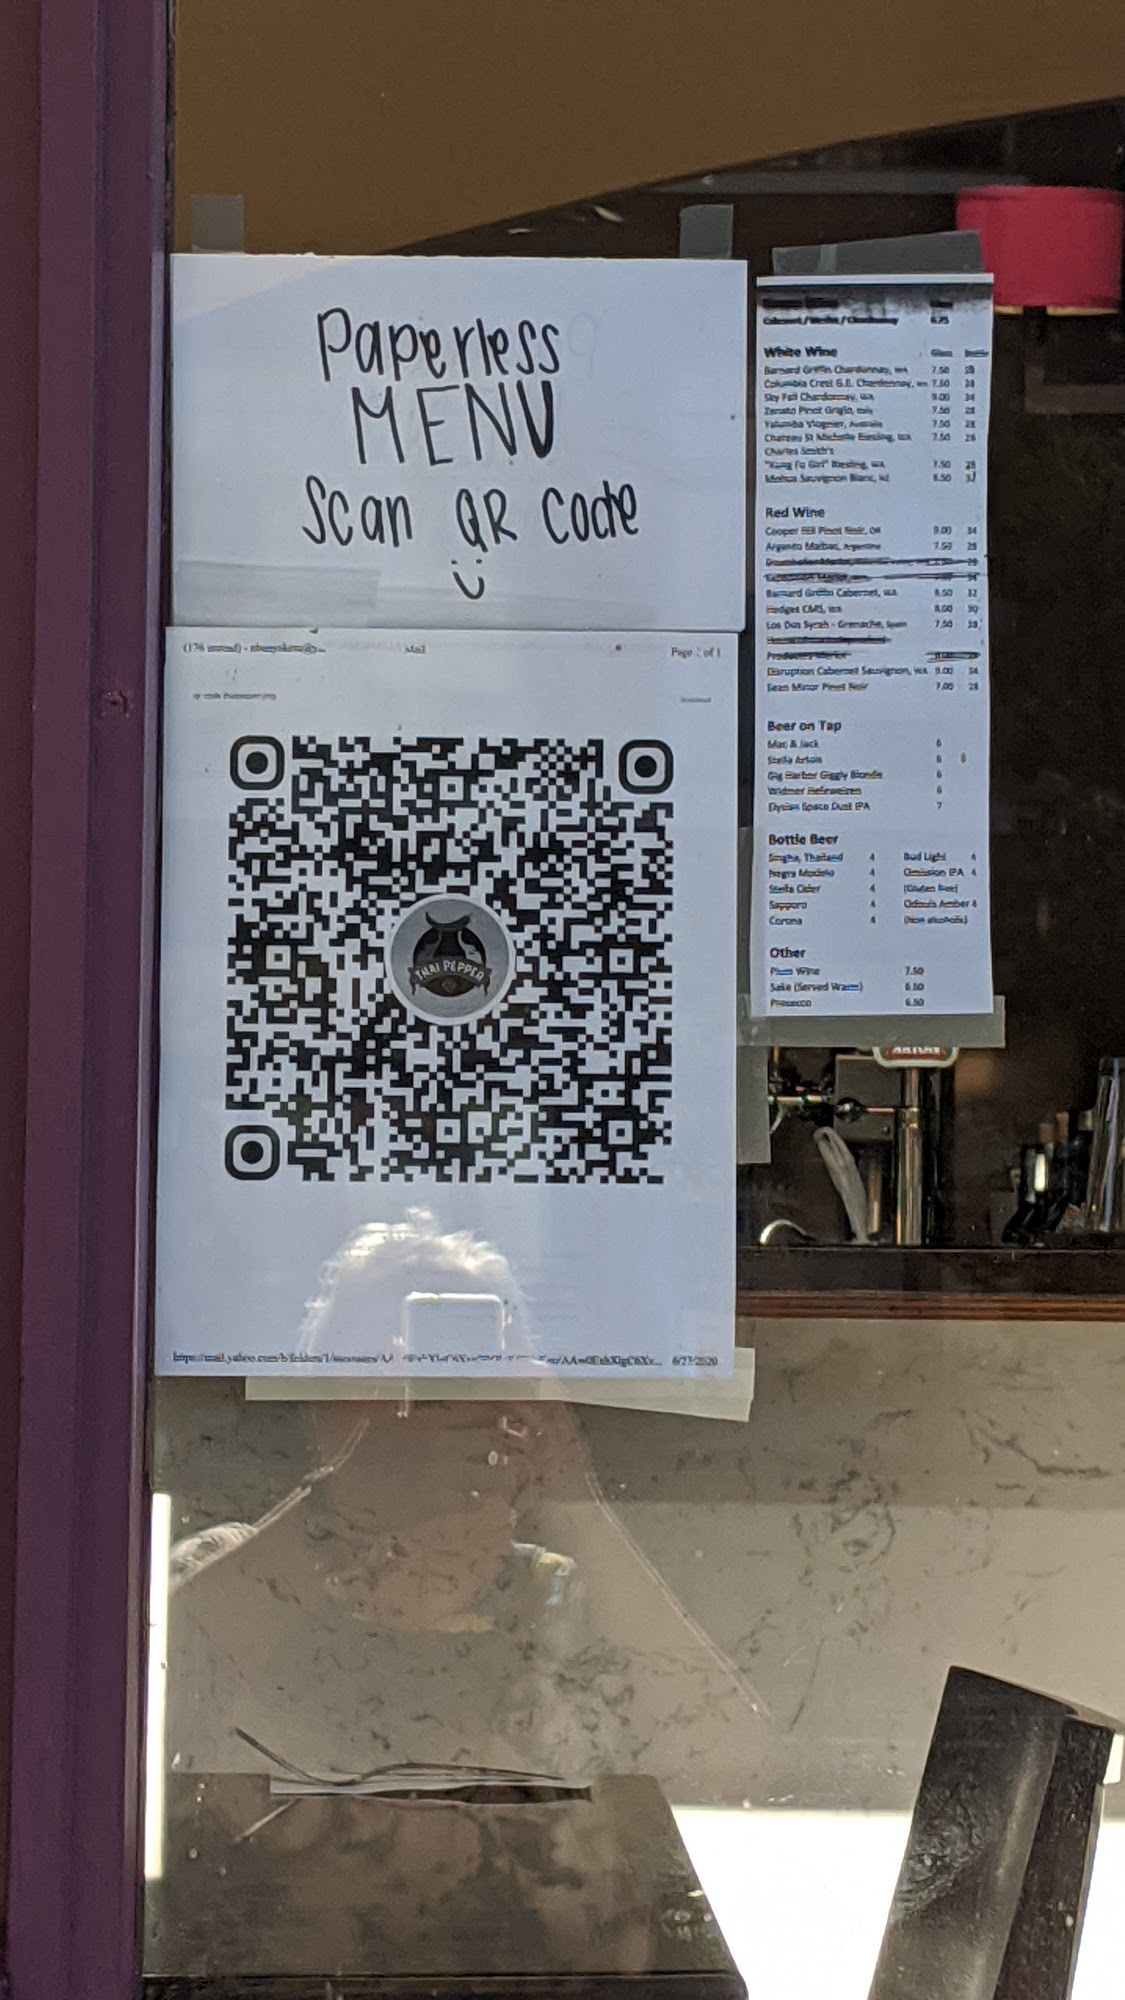 Paperless
MENU
Scan QR code
Page 1 of 1
THAI PEPPER
6/23/2020
Cabernet / Merlot / Chardonnay 6.75
White Wine Glass Bottle
Barnard Griffin Chardonnay, WA 7.50 28
Columbia Crest G.E. Chardonnay, WA 7.50 28
Sky Fall Chardonnay, WA 9.00 34
Zenato Pinot Grigio, Italy 7.50 28
Yalumba Viognier, Australia 7.50 28
Chateau St Michelle Riesling, WA 7.50 28
Charles Smith's
"Kung Fu Girl" Riesling, WA 7.50 28
Mohua Sauvignon Blanc, NZ 8.50 32
Red Wine
Cooper Hill Pinot Noir, OR 9.00 34
Argento Malbec, Argentina 7.50 28
Barnard Griffin Cabernet, WA 8.50 32
Hedges CMS, WA 8.00 30
Los Dos Syrah - Grenache, Spain 7.50 28
Disruption Cabernet Sauvignon, WA 9.00 34
Sean Minor Pinot Noir 7.00 28
Beer on Tap
Mac & Jack 6
Stella Artois 6
Gig Harbor Giggly Blonde 6
Widmer Hefeweizen 6
Elysian Space Dust IPA 7
Bottle Beer
Singha, Thailand 4 Bud Light 4
Negra Modelo 4 Omission IPA 4
Stella Cider 4 (Gluten free)
Sapporo 4 Odouls Amber 4
Corona 4 (Non alcoholic)
Other
Plum Wine 7.50
Sake (Served Warm) 6.50
Prosecco 6.50